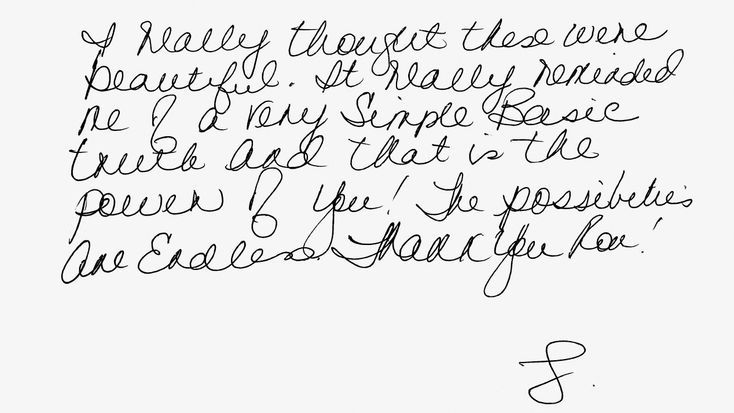 I really thought these were
beautiful. It really reminded
me of a very Simple Basic
truth and that is the
power of you! The possibilities
are Endless. Thank you Ron!
J.